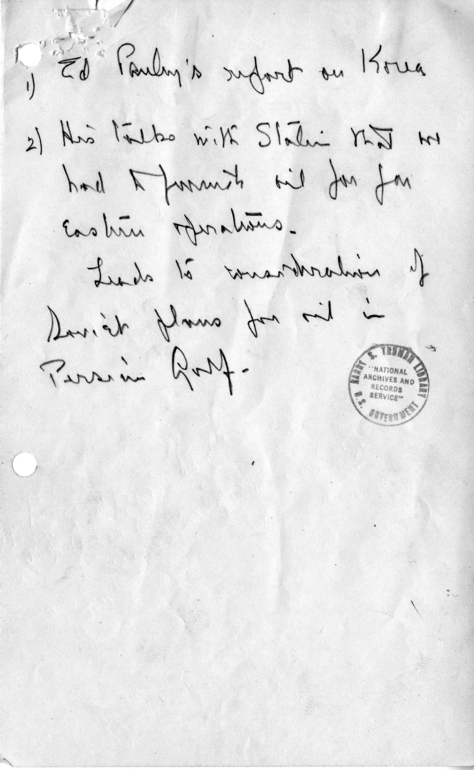 1) Ed Pauley's report on Korea
2) His talks with Stalin that we
had to furnish oil for far
Eastern operations.
Leads to consideration of
Soviet plans for oil in
Persian Gulf.
HARRY S. TRUMAN LIBRARY
"NATIONAL
ARCHIVES AND
RECORDS
SERVICE"
U.S. GOVERNMENT